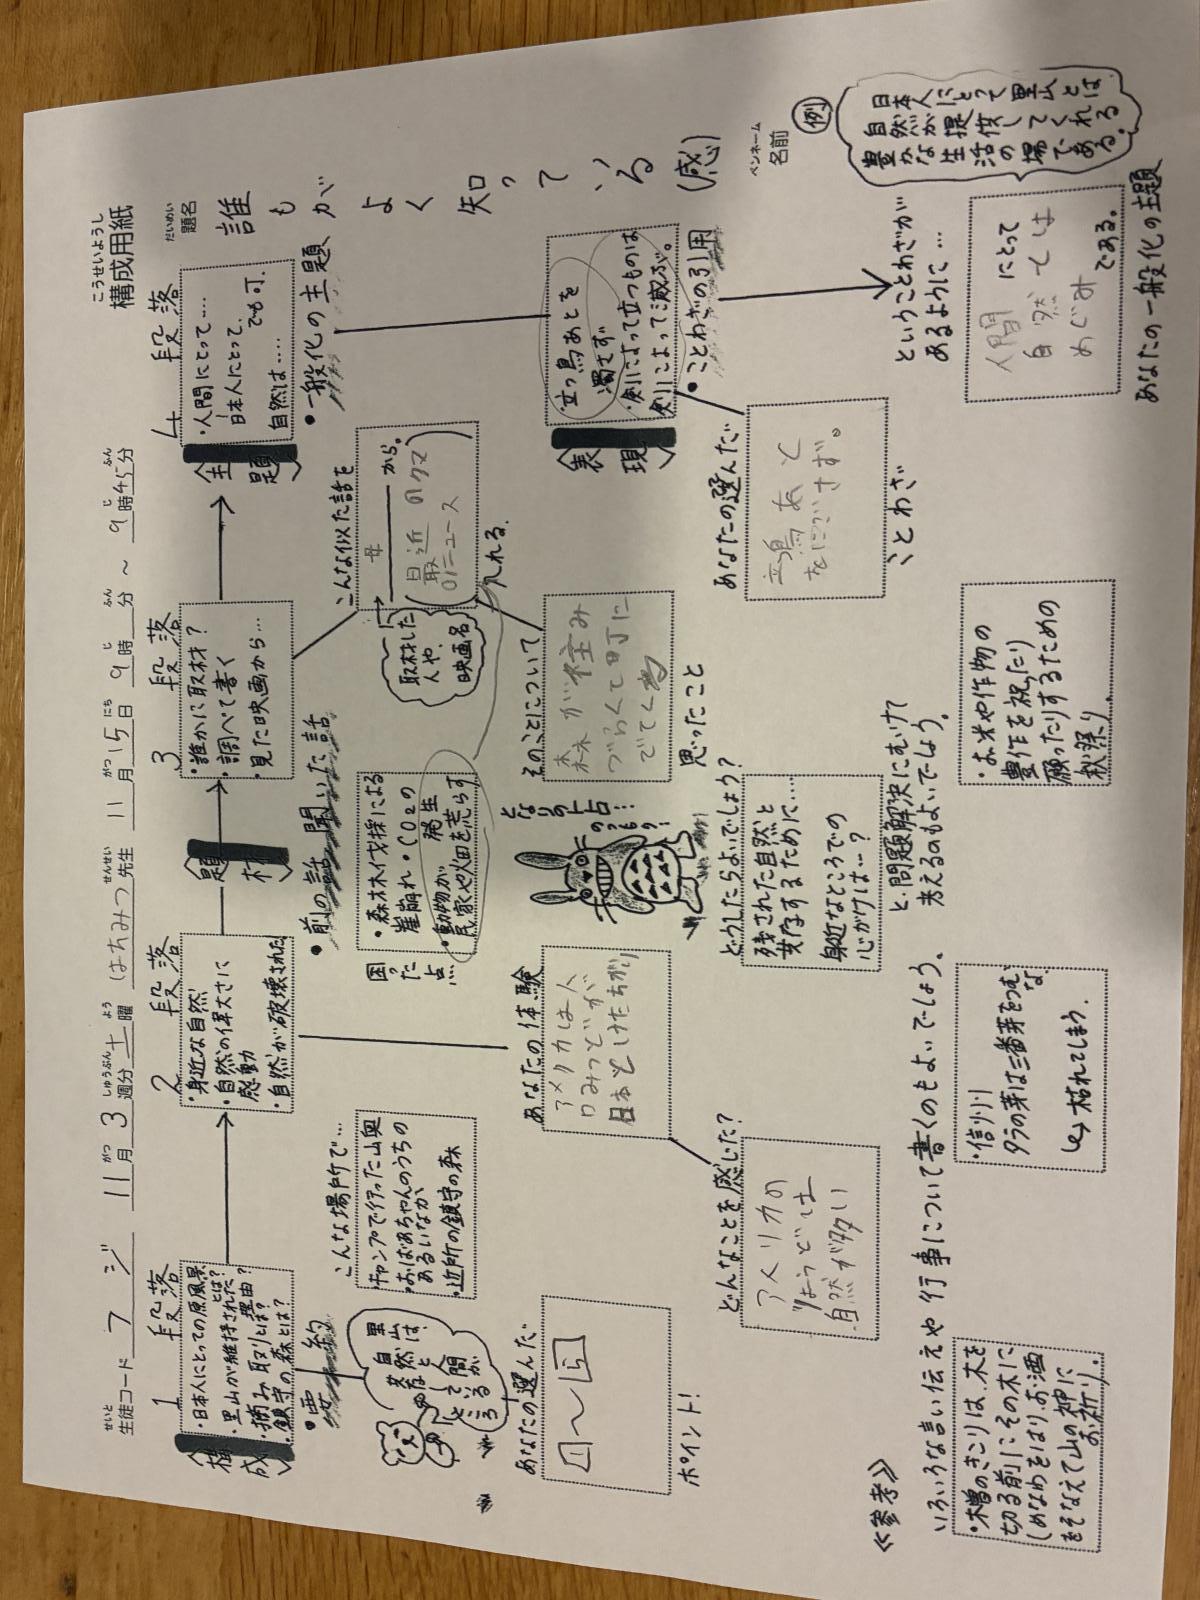 こうせいようし
構成用紙
せいと
生徒コード フジ 11月 3週分 土曜 はちみつ先生 11月15日 9時 分 ~ 9時45分
だいめい
題名 誰もがよく知っている(感)
ペンネーム
名前
1段落
2段落
3段落
4段落
構成
・日本人にとっての原風景とは?
・里山が維持された理由?
・摘み取りとは?
・鎮守の森とは?
・要約
里山は、
自然と
人間が
共存
しているところ
あなたの選んだ
1〜5
ポイント!
・身近な自然
・自然の偉大さに
感動
・自然が破壊された
こんな場所で…
・キャンプで行った山奥
・おばあちゃんのうちの
あるいなか
・近所の鎮守の森
あなたの体験
アメリカは人
口みつどが
日本とけたちがい
どんなことを感じた?
アメリカの
ほうどは
自然が多い
題材
・前の話 聞いた話
・誰かに取材?
・調べて書く
・見た映画から…
困った点
・森林木伐採による
崖崩れ・CO2の
発生
・動物が
民家や畑を荒らす
となりの
どうしたらよいでしょう?
残された自然と
共存するために…
身近なところでの
心がけは…?
と、問題解決にむけて
考えるのもよいでしょう。
こんな似た話を
母 から。
(最近のクマ
のニュース)
入れる。
取材した
人や、
映画名
そのことについて
森が住み
づらくて町に
でてくる
思ったこと
主題
・人間にとって…
日本人にとって、
自然は…… でも可.
・一般化の主題
表現
・立つ鳥あとを
濁さず
・剣によって立つものは
剣によって滅ぶ。
・ことわざの引用
あなたの選んだ
立鳥あと
をにごさず。
ことわざ
ということわざが
あるように…
人間にとって
自然とは
めぐみ
である。
あなたの一般化の主題
例
日本人にとって里山とは
自然が提供してくれる
豊かな生活の場である。
≪参考≫
いろいろな言い伝えや行事について書くのもよいでしょう。
・木曽のきこりは、木を
切る前にその木に
しめなわをはり、お酒
をそなえて山の神に
お祈り。
・信州
タラの芽は三番芽をつむな
↳枯れてしまう.
・お米や作物の
豊作を祝ったり
願ったりするための
秋祭り.